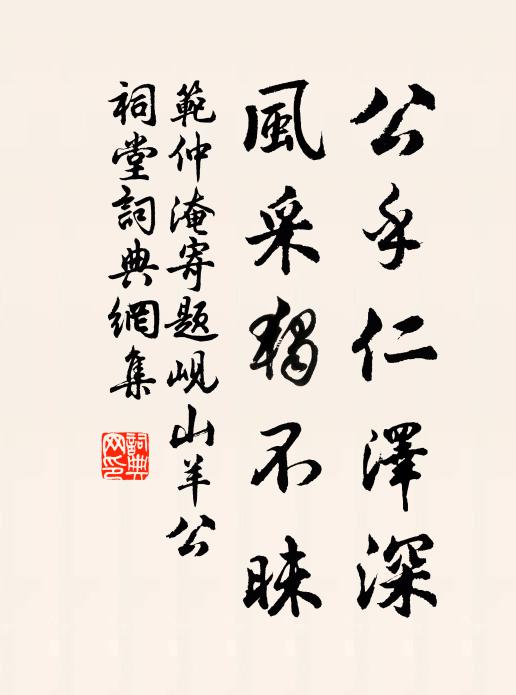 公乎仁澤深
風采獨不昧
範仲淹寄題峴山羊公
祠堂詞典網集
詞典网印